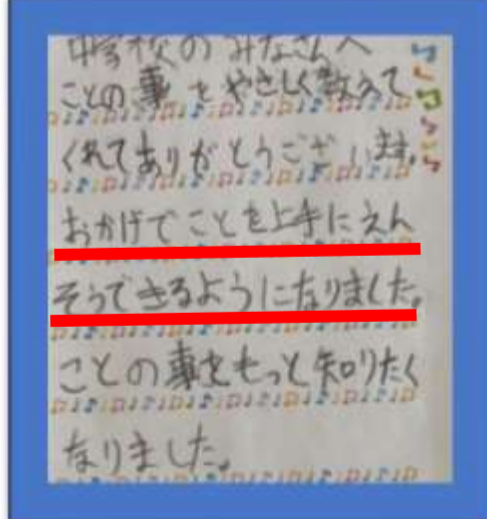 中学校のみなさんへ
ことの事をやさしく教えて
くれてありがとうございます。
おかげでことを上手にえん
そうできるようになりました。
ことの事をもっと知りたく
なりました。